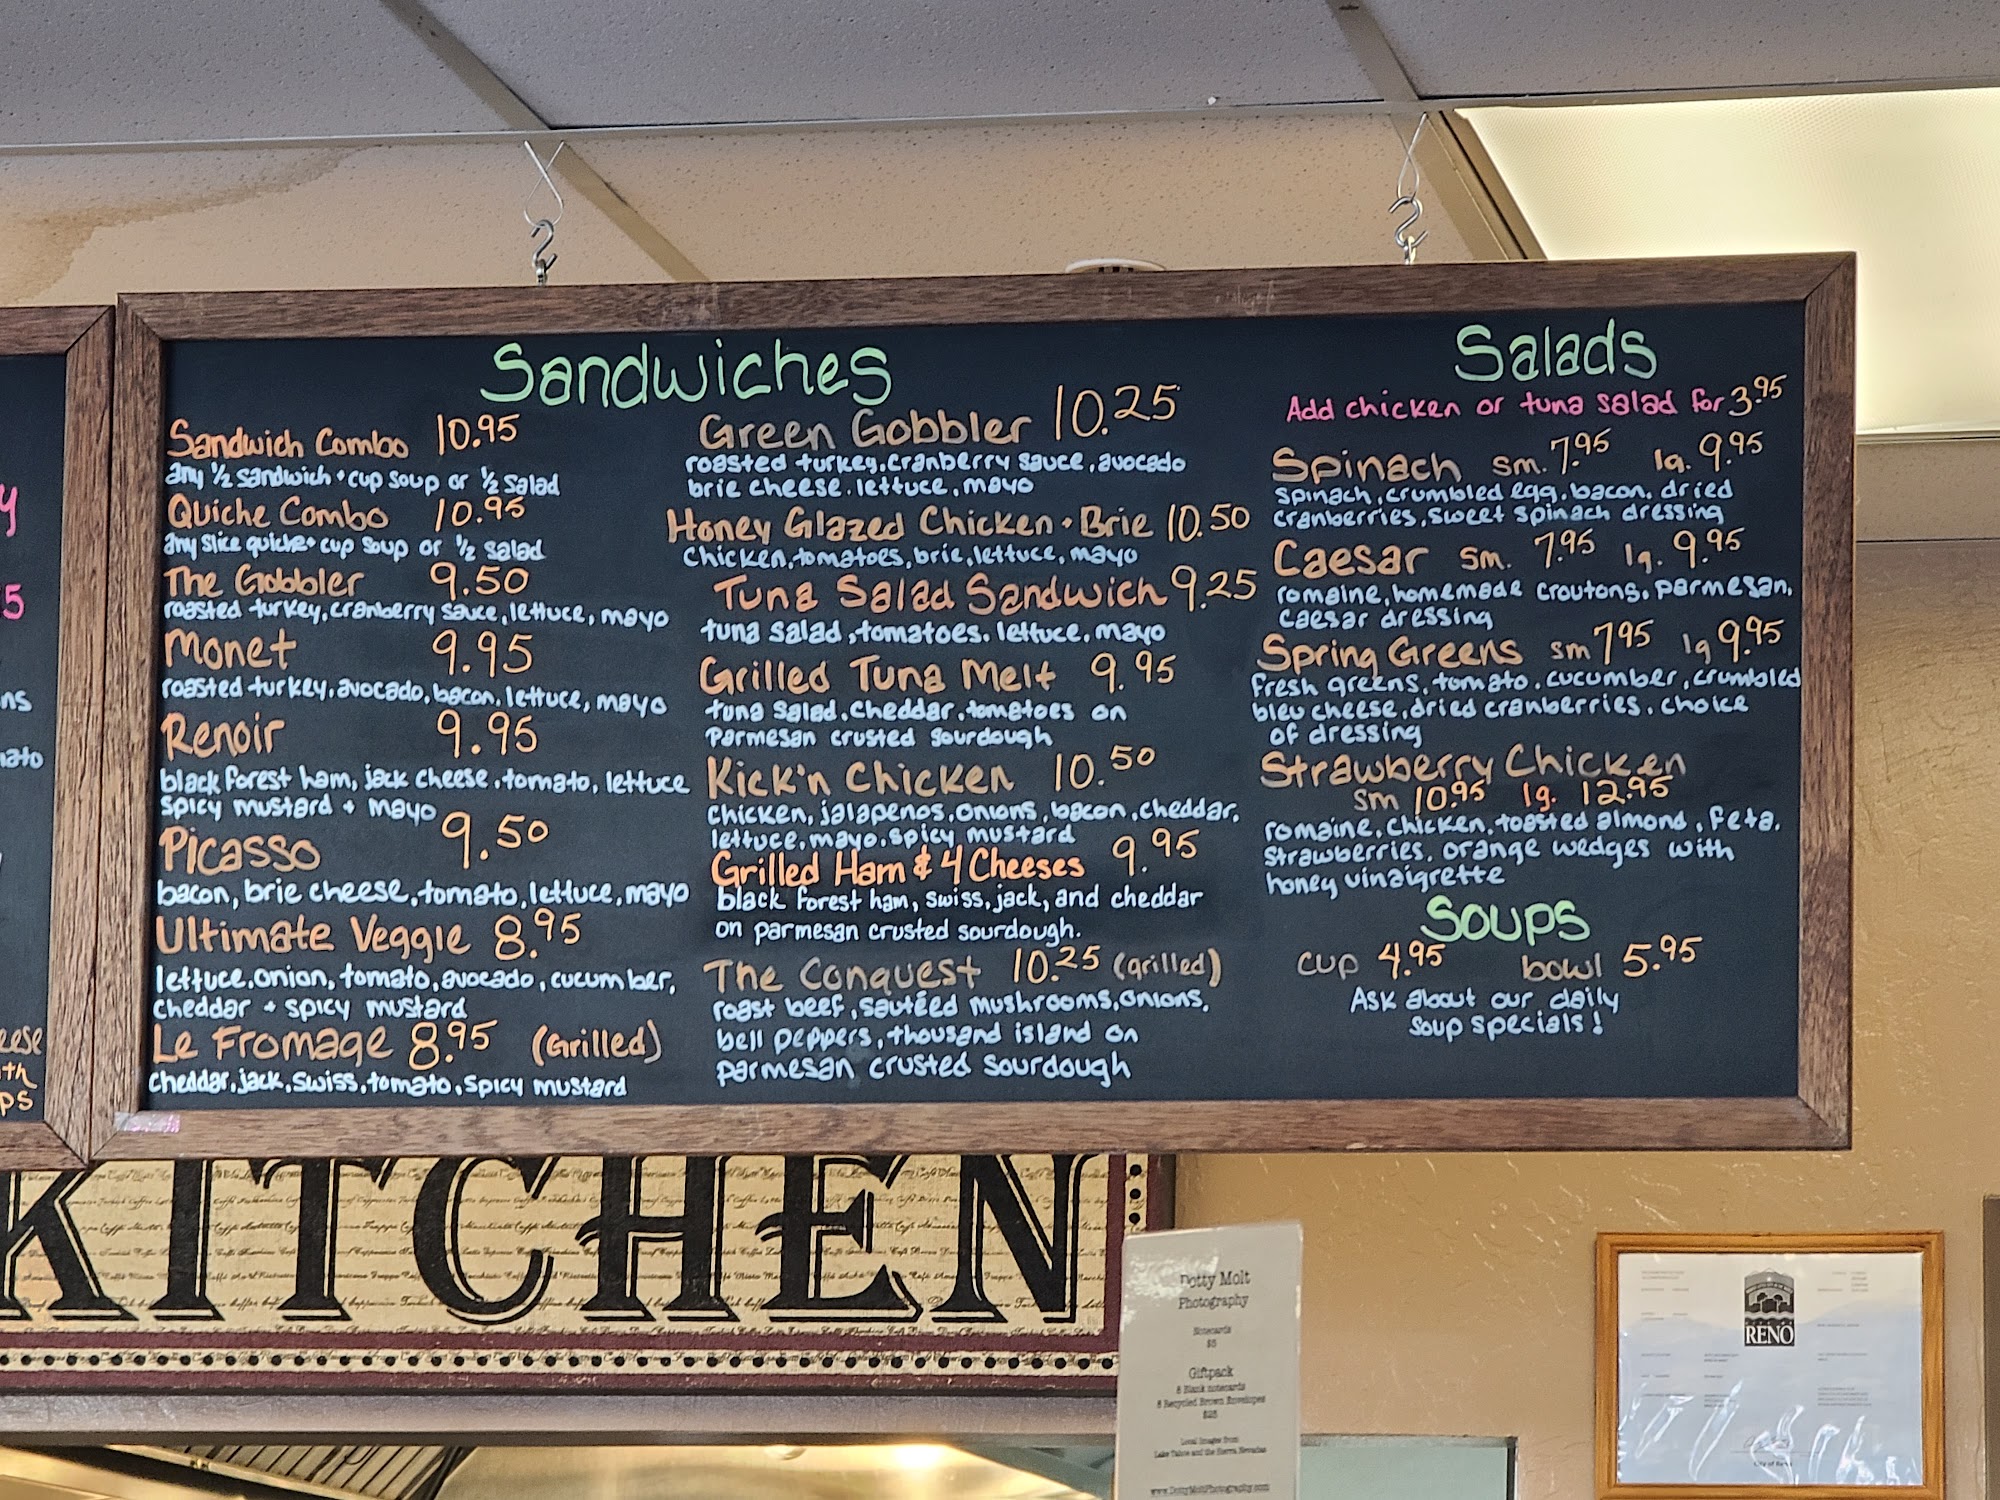 Sandwiches
Sandwich Combo 10.95
any 1/2 sandwich + cup soup or 1/2 salad
Quiche Combo 10.95
any slice quiche + cup soup or 1/2 salad
The Gobbler 9.50
roasted turkey, cranberry sauce, lettuce, mayo
Monet 9.95
roasted turkey, avocado, bacon, lettuce, mayo
Renoir 9.95
black forest ham, jack cheese, tomato, lettuce
spicy mustard + mayo
Picasso 9.50
bacon, brie cheese, tomato, lettuce, mayo
Ultimate Veggie 8.95
lettuce, onion, tomato, avocado, cucumber,
cheddar + spicy mustard
Le Fromage 8.95 (Grilled)
cheddar, jack, swiss, tomato, spicy mustard
Green Gobbler 10.25
roasted turkey, cranberry sauce, avocado
brie cheese, lettuce, mayo
Honey Glazed Chicken + Brie 10.50
Chicken, tomatoes, brie, lettuce, mayo
Tuna Salad Sandwich 9.25
tuna salad, tomatoes, lettuce, mayo
Grilled Tuna Melt 9.95
tuna salad, cheddar, tomatoes on
parmesan crusted sourdough
Kick'n Chicken 10.50
chicken, jalapenos, onions, bacon, cheddar,
lettuce, mayo, spicy mustard
Grilled Ham & 4 Cheeses 9.95
black forest ham, swiss, jack, and cheddar
on parmesan crusted sourdough.
The Conquest 10.25 (grilled)
roast beef, sautéed mushrooms, onions,
bell peppers, thousand island on
parmesan crusted sourdough
Salads
Add chicken or tuna salad for 3.95
Spinach sm. 7.95 lg. 9.95
spinach, crumbled egg, bacon, dried
cranberries, sweet spinach dressing
Caesar sm. 7.95 lg. 9.95
romaine, homemade croutons, parmesan,
caesar dressing
Spring Greens sm 7.95 lg 9.95
Fresh greens, tomato, cucumber, crumbled
bleu cheese, dried cranberries, choice
of dressing
Strawberry Chicken
sm 10.95 lg. 12.95
romaine, chicken, toasted almond, feta,
strawberries, orange wedges with
honey vinaigrette
Soups
cup 4.95 bowl 5.95
Ask about our daily
soup specials!
KITCHEN
Dotty Molt
Photography
Notecards
$5
Giftpack
8 Blank notecards
8 Recycled Brown Envelopes
$25
Local Images from
Lake Tahoe and the Sierra Nevadas
www.DottyMoltPhotography.com
RENO
City of Reno